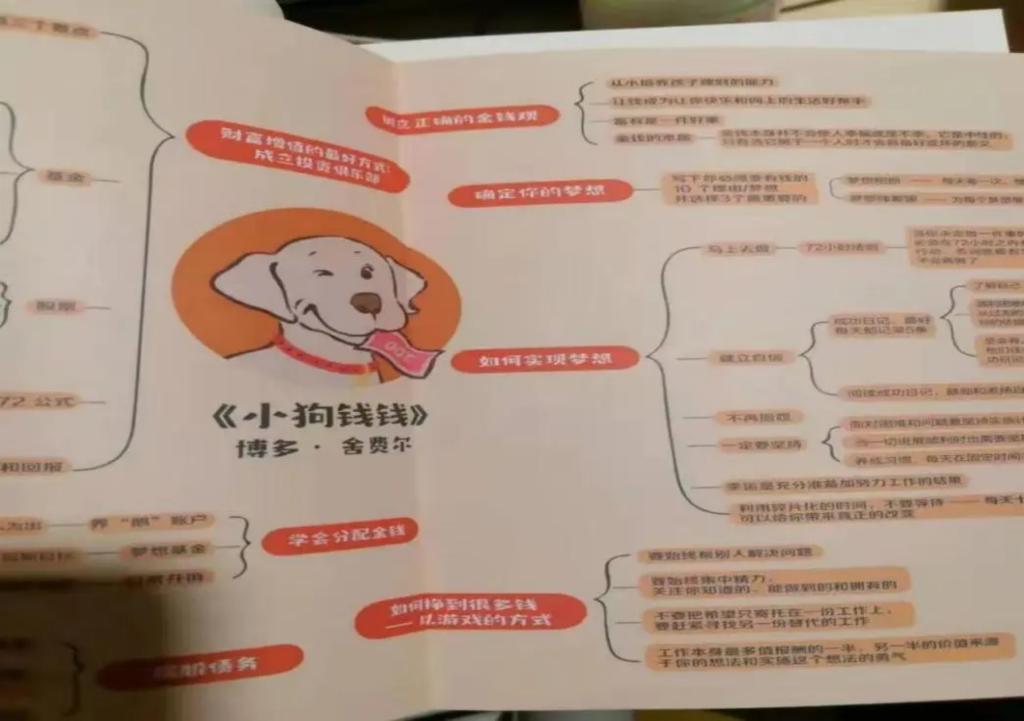 财富增值的最好方式:
成立投资俱乐部
基金
股票
72 公式
和回报
《小狗钱钱》
博多 · 舍费尔
学会分配金钱
养“鹅”账户
梦想基金
日常开销
债务
树立正确的金钱观
从小培养孩子理财的能力
让钱成为让你快乐和向上的生活好帮手
富有是一件好事
金钱的本质
金钱本身并不会使人幸福或是不幸，它是中性的，
只有当它属于一个人时才会有好或坏的意义
确定你的梦想
写下你必须变有钱的
10 个理由/梦想
并选择3个最重要的
梦想相册 —— 每天看一次，想
梦想储蓄罐 —— 为每个梦想准
如何实现梦想
马上去做
72小时法则
当你决定做一件事
不会再做了
建立自信
成功日记，最好
每天都记满5条
了解自己
阅读成功日记，鼓励和激励
不再抱怨
一定要坚持
面对困难和问题要坚持实施计
当一切进展顺利时也需要坚
养成习惯，每天在固定时间
幸运是充分准备加努力工作的结果
利用碎片化的时间，不要等待 —— 每天十
可以给你带来真正的改变
如何挣到很多钱
—以游戏的方式
要始终帮别人解决问题
要始终集中精力，
关注你知道的、能做到的和拥有的
不要把希望只寄托在一份工作上，
要赶紧寻找另一份替代的工作
工作本身最多值报酬的一半，另一半的价值来源
于你的想法和实施这个想法的勇气